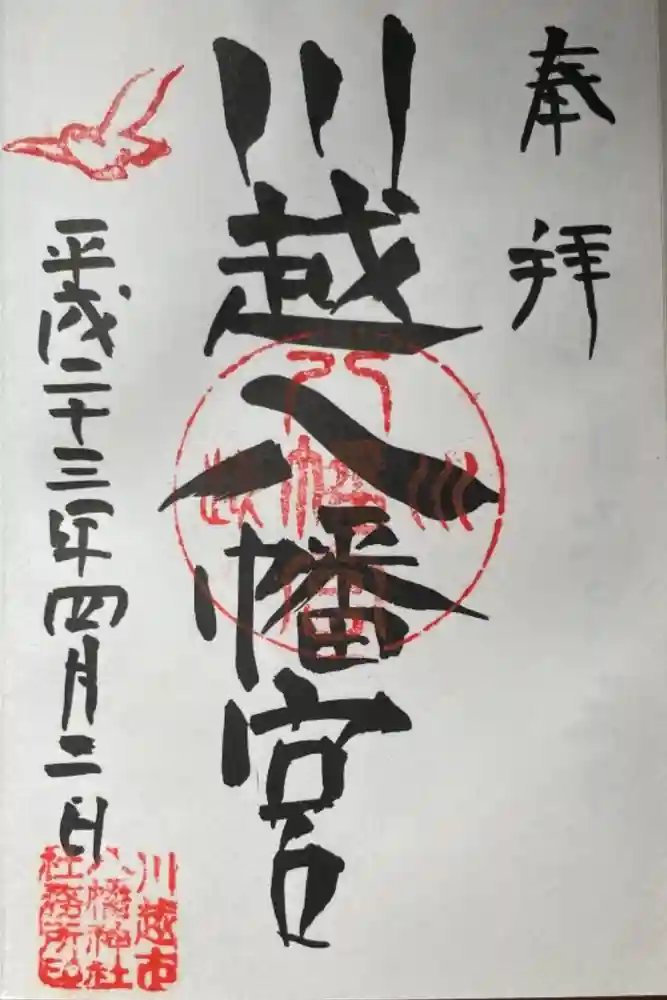 奉拝
川越八幡宮
平成二十三年四月二日
川越市
八幡神社
社務所印